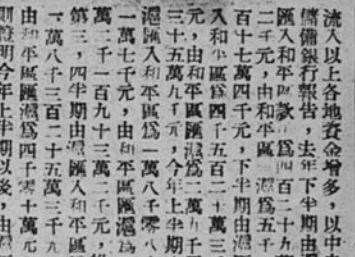 流入以上各地資金增多，以中央
儲備銀行報告，去年下半期由滬
匯入和平區款爲四百二十九萬
二千元，由和平區匯滬爲五千
百十七萬四千元，下半期由滬匯
入和平區爲四千五百二十萬三
元，由和平區匯滬爲二萬九千
三十五萬九千元，今年上半期
滬匯入和平區爲一萬八千零八
一萬七千元，由和平區匯滬爲
萬二千一百九十三萬二千元，
第三，四半期由滬匯入和平區
一萬八千三百二十五萬三千元
由和平區匯滬爲四千零十萬元
則證明今年上半期以後，由滬